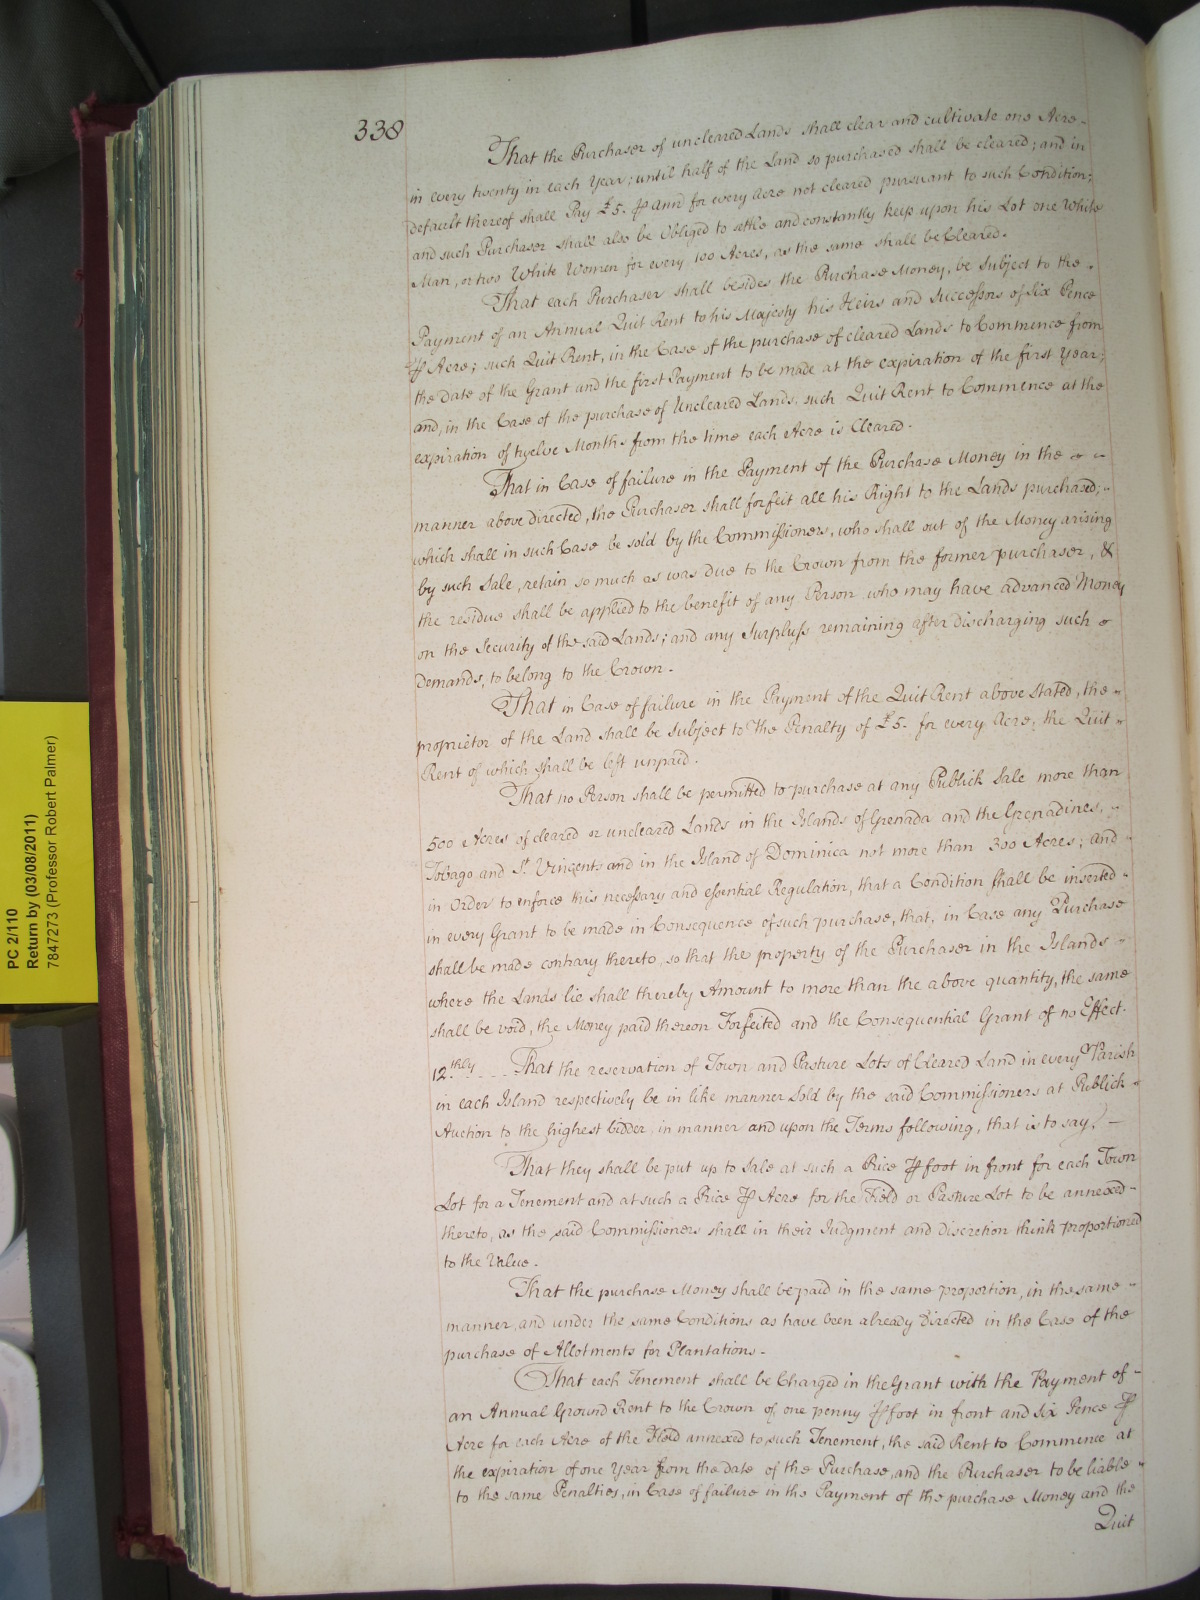 338
That the Purchaser of uncleared Lands shall clear and cultivate one Acre
in every twenty in each Year; until half of the Land so purchased shall be cleared; and in
default thereof shall Pay £5. ⅌ Ann for every Acre not cleared pursuant to such Condition;
and such Purchaser shall also be Obliged to settle and constantly keep upon his Lot one White
Man, or two White Women for every 100 Acres, as the same shall be Cleared.
That each Purchaser shall besides the Purchase Money, be Subject to the
Payment of an Annual Quit Rent to his Majesty his Heirs and Successors of Six Pence
⅌ Acre; such Quit Rent, in the Case of the purchase of cleared Lands to Commence from
the Date of the Grant and the first Payment to be made at the expiration of the first Year;
and, in the Case of the purchase of Uncleared Lands, such Quit Rent to Commence at the
expiration of twelve Months from the time each Acre is Cleared.
That in Case of failure in the Payment of the Purchase Money in the
manner above directed, the Purchaser shall forfeit all his Right to the Lands purchased;
which shall in such Case be sold by the Commissioners, who shall out of the Money arising
by such Sale, retain so much as was due to the Crown from the former purchaser, &
the residue shall be applied to the benefit of any Person who may have advanced Money
on the Security of the said Lands; and any Surpluss remaining after discharging such
Demands, to belong to the Crown.
That in Case of failure in the Payment of the Quit Rent above Stated, the
proprietor of the Land shall be Subject to the Penalty of £5. for every Acre, the Quit
Rent of which shall be left unpaid.
That no Person shall be permitted to purchase at any Publick Sale more than
500 Acres of cleared or uncleared Lands in the Islands of Grenada and the Grenadines,
Tobago and St. Vincents and in the Island of Dominica not more than 300 Acres; and
in Order to enforce this necessary and essential Regulation, that a Condition shall be inserted
in every Grant to be made in Consequence of such purchase, that, in Case any Purchase
shall be made contrary thereto, so that the property of the Purchaser in the Islands
where the Lands lie shall thereby Amount to more than the above quantity, the same
shall be void, the Money paid thereon Forfeited and the Consequential Grant of no Effect.
12thly. That the reservation of Town and Pasture Lots of Cleared Land in every Parish
in each Island respectively be in like manner Sold by the said Commissioners at Publick
Auction to the highest bidder, in manner and upon the Terms following, that is to say,
That they shall be put up to Sale at such a Price ⅌ foot in front for each Town
Lot for a Tenement and at such a Price ⅌ Acre for the Field or Pasture Lot to be annexed
thereto, as the said Commissioners shall in their Judgment and discretion think proportioned
to the Value.
That the purchase Money shall be paid in the same proportion, in the same
manner, and under the same Conditions as have been already Directed in the Case of the
purchase of Allotments for Plantations.
That each Tenement shall be Charged in the Grant with the Payment of
an Annual Ground Rent to the Crown of one penny ⅌ foot in front and Six Pence ⅌
Acre for each Acre of the Field annexed to such Tenement, the said Rent to Commence at
the expiration of one Year from the date of the Purchase, and the Purchaser to be liable
to the same Penalties, in Case of failure in the Payment of the purchase Money and the
Quit
PC 2/110
Return by (03/08/2011)
7847273 (Professor Robert Palmer)